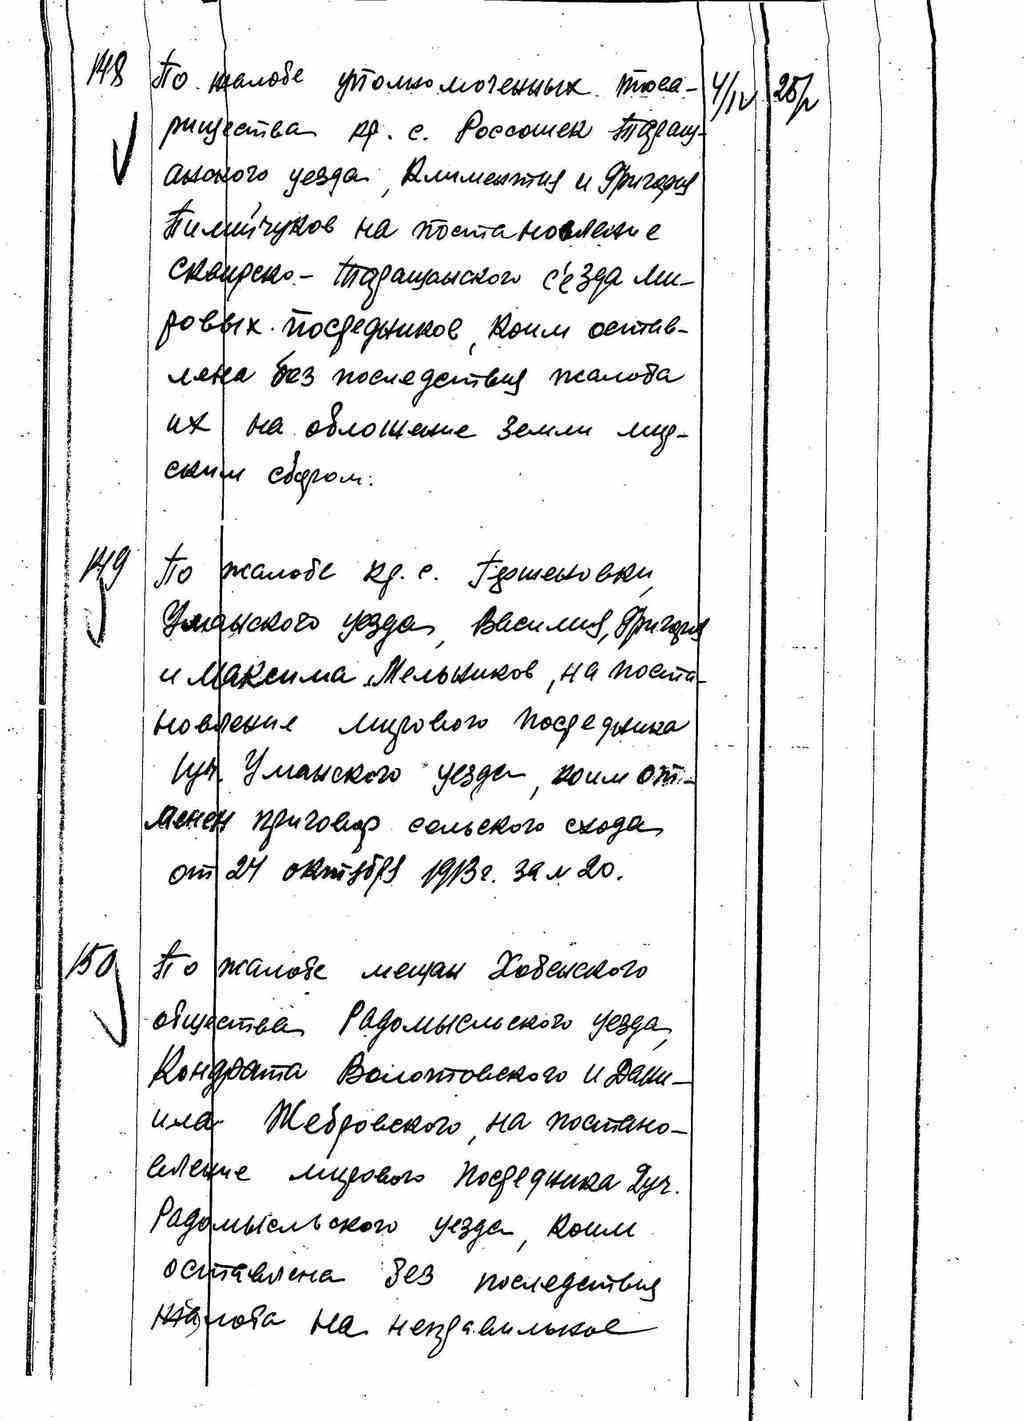 148 По жалобе уполномоченных това- 4/IV 25/V
рищества кр. с. Россошек Таращ-
анского уезда, Климентия и Григория
Пилипчуков на постановление
Сквирско-Таращанского с'езда ми-
ровых посредников, коим остав-
лена без последствия жалоба
их на обложение земли мир-
ским сбором.
149 По жалобе кр. с.
Уманского уезда, Василия, Григория
и Максима Мельников, на поста-
новление мирового посредника
1 уч. Уманского уезда, коим от-
менен приговор сельского схода
от 24 октября 1913 г. за № 20.
150 По жалобе мещан Хабенского
общества Радомысльского уезда,
Кондрата Волотовского и Дани-
ила Жебровского, на постано-
вление мирового посредника 2 уч.
Радомысльского уезда, коим
оставлена без последствия
жалоба на неправильное